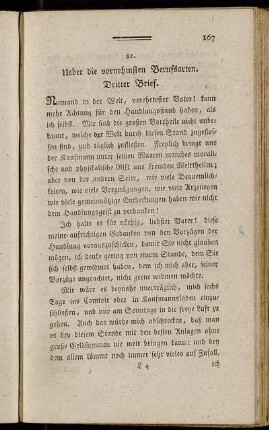 167
82.
Ueber die vornehmsten Berufsarten.
Dritter Brief.
Niemand in der Welt, verehrtester Vater! kann
mehr Achtung für den Handlungsstand haben, als
ich selbst. Mir sind die großen Vortheile nicht unbe-
kannt, welche der Welt durch diesen Stand zugeflos-
sen sind, und täglich zufließen. Freylich bringt uns
der Kaufmann unter seinen Waaren manches morali-
sche und physikalische Gift aus fremden Welttheilen:
aber von der andern Seite, wie viele Bequemlich-
keiten, wie viele Vergnügungen, wie viele Arzeneyen
wie viele gemeinnützige Entdeckungen haben wir nicht
dem Handlungsgeist zu verdanken!
Ich halte es für nöthig, liebster Vater! diese
meine aufrichtigen Gedanken von den Vorzügen der
Handlung vorauszuschicken, damit Sie nicht glauben
mögen, ich denke gering von einem Stande, dem Sie
sich selbst gewidmet haben, dem ich mich aber, seiner
Vorzüge ungeachtet, nicht gerne widmen möchte.
Mir wäre es beynahe unerträglich, mich sechs
Tage ins Comtoir oder in Kaufmannsladen einzu-
stecken, und nur am Sonntage in die freye Luft zu
gehen. Auch das würde mich abschrecken, daß man
es bey diesem Stande mit den besten Anlagen ohne
große Geldsummen nie weit bringen kann: und bey
dem allem kömmt noch immer sehr vieles auf Zufall,
L 4